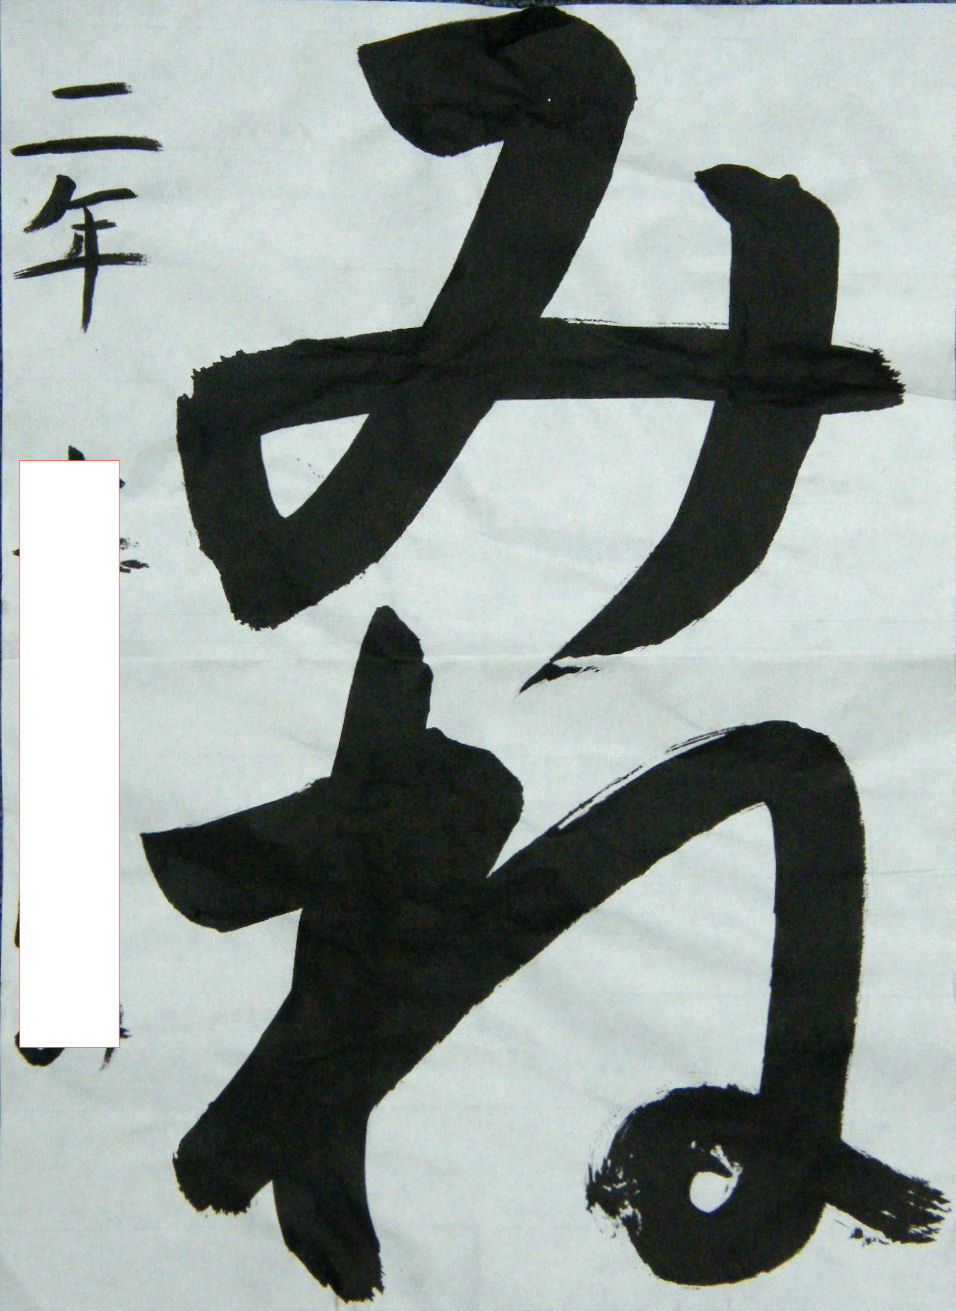 みね
二年